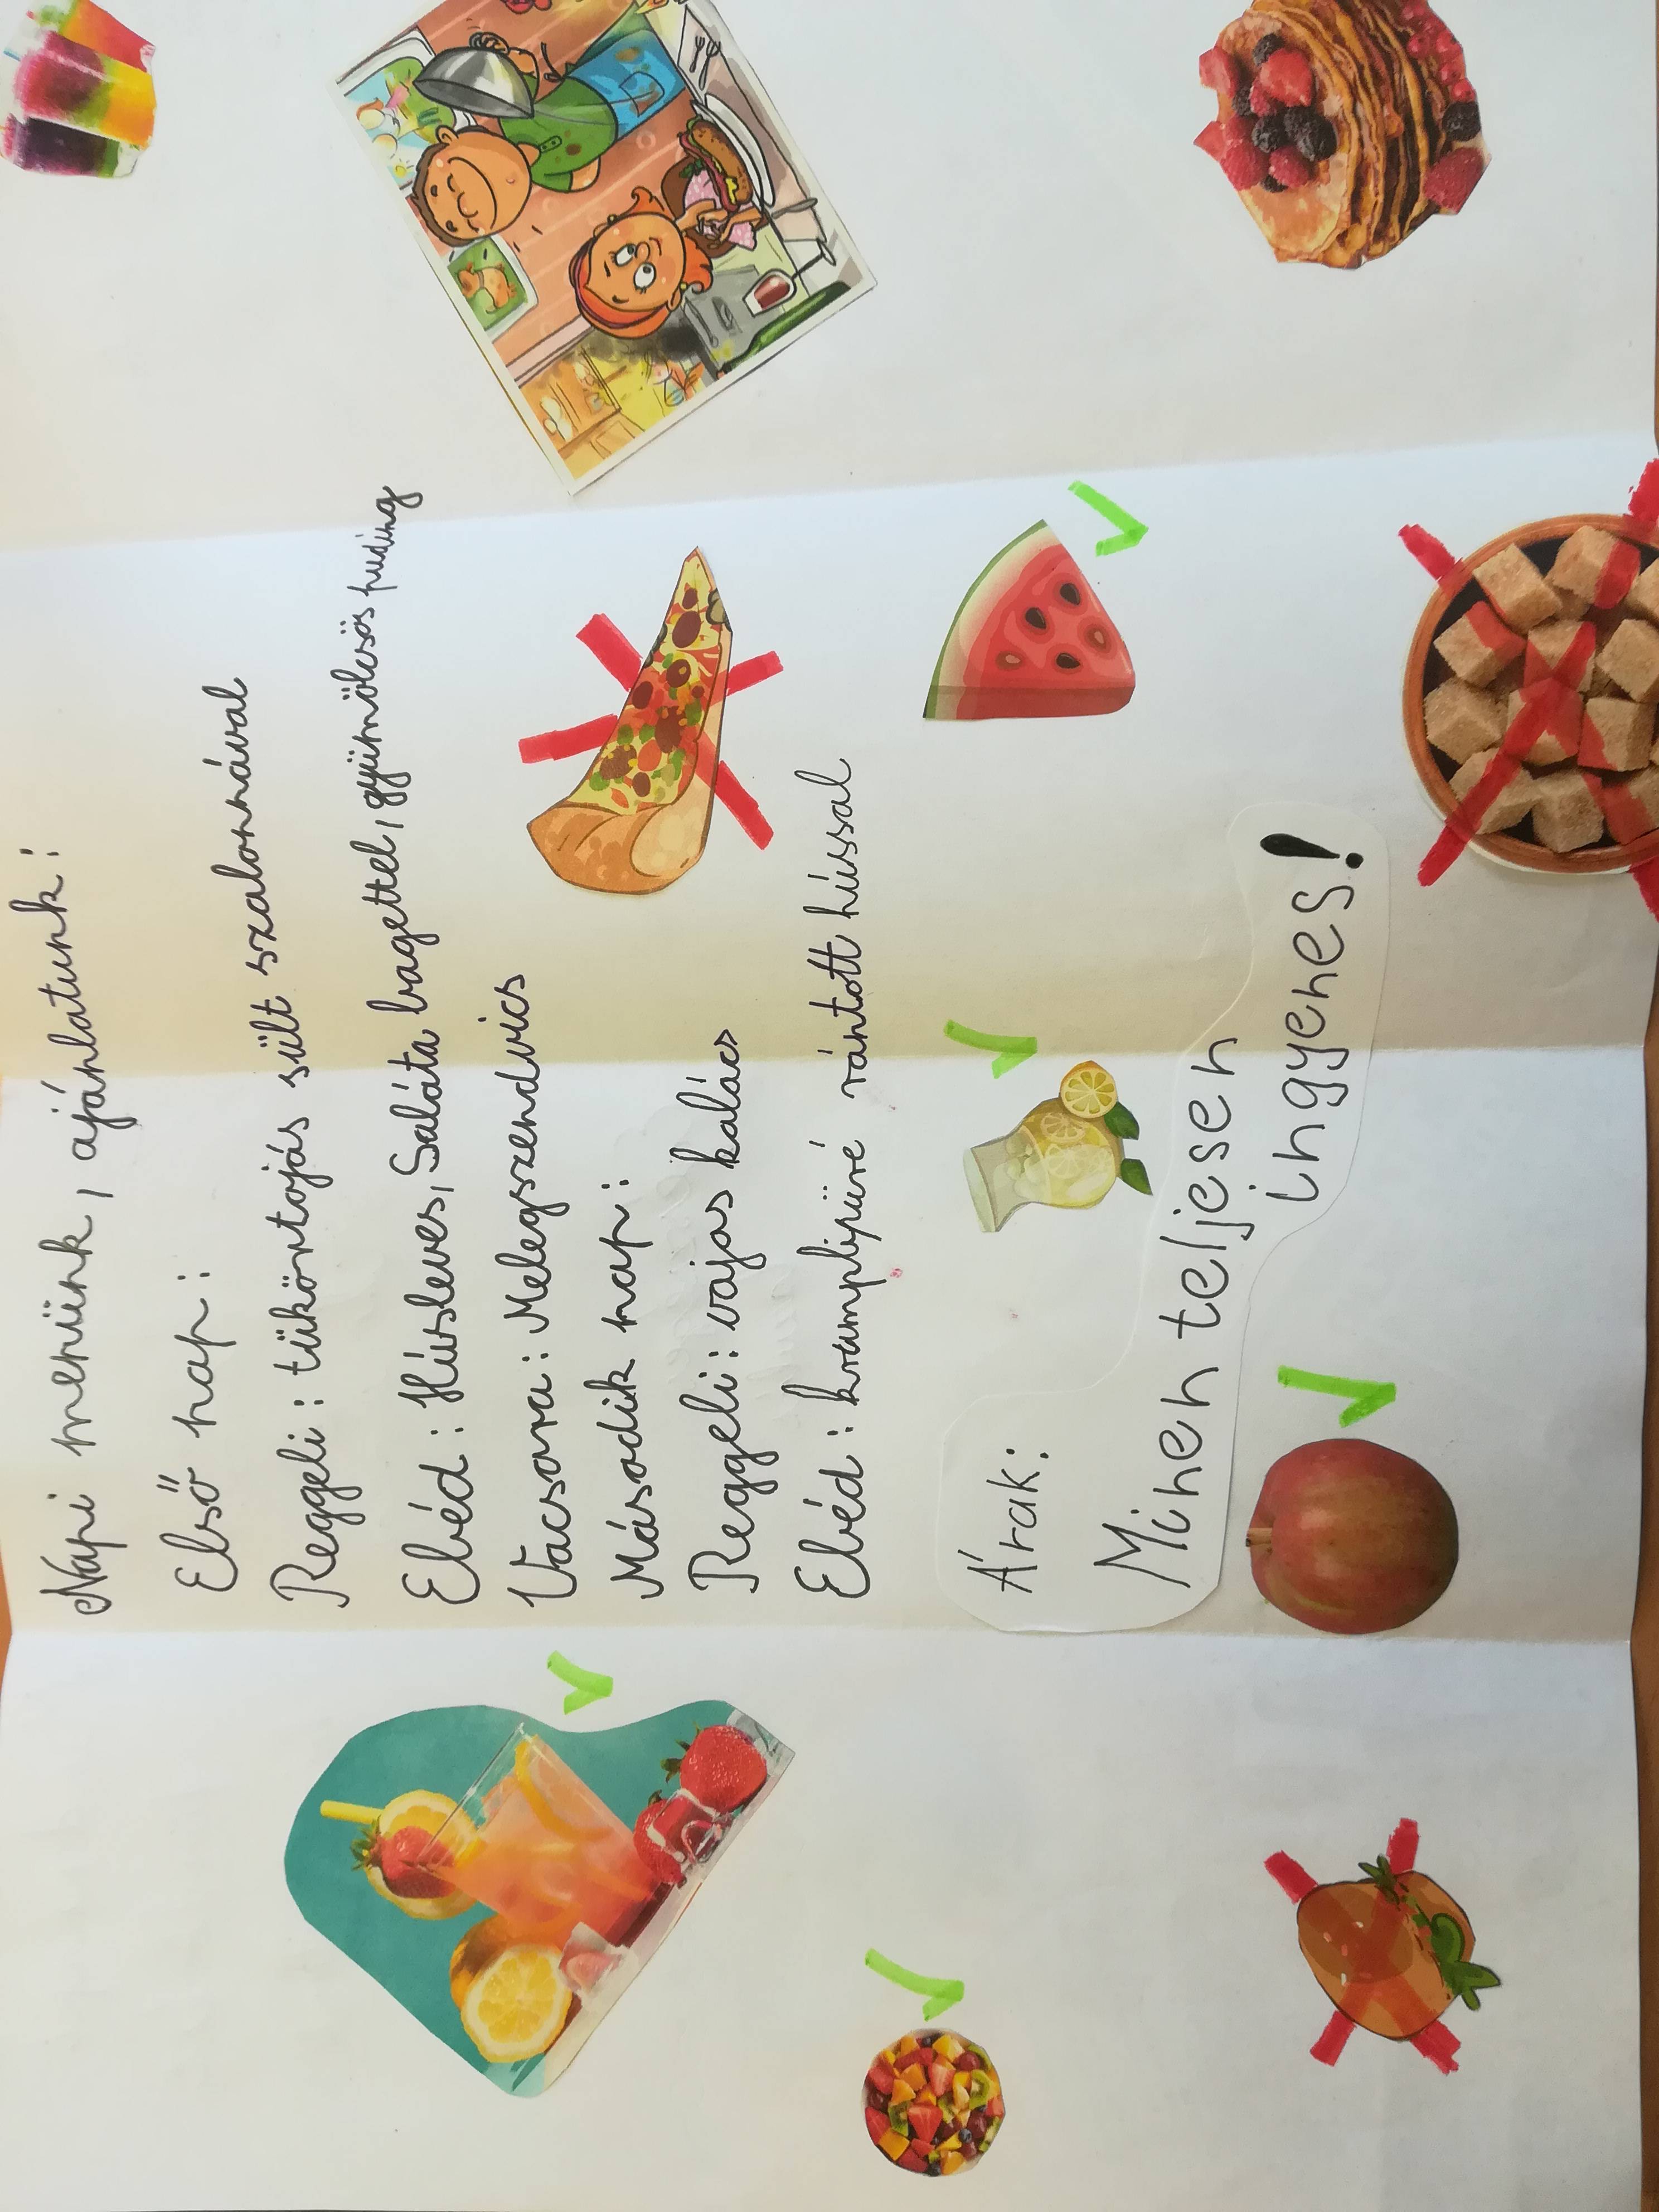 Napi menünk, ajánlatunk:
Első nap:
Reggeli: tükörtojás sült szalonnával
Ebéd: Húsleves, Saláta bagettel, gyümölcsös puding
Vacsora: Melegszendvics
Második nap:
Reggeli: vajas kalács
Ebéd: krumplipüré rántott hússal
Árak:
Minen teljesen
ingyenes!